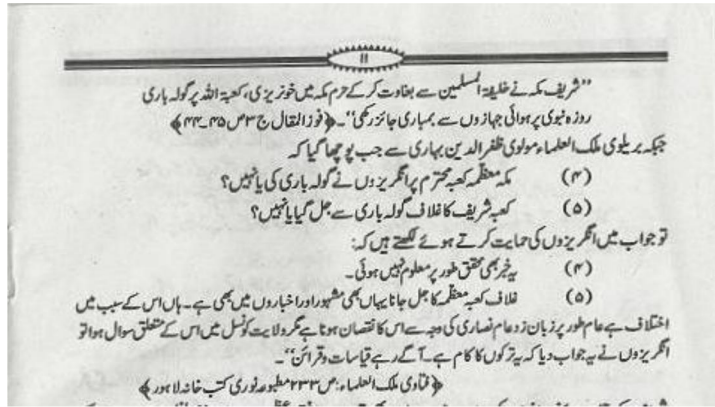 ۱۱
"شریف مکہ نے خلیفۃ المسلمین سے بغاوت کر کے حرم مکہ میں خونریزی، کعبۃ اللہ پر گولہ باری
روزہ نبوی پر ہوائی جہازوں سے بمباری جائز رکھی"۔ ﴿فوز المقال ج ۳ ص ۳۵۔۴۴﴾
جبکہ بریلوی ملک العلماء مولوی ظفر الدین بہاری سے جب پوچھا گیا کہ
(۴) مکہ معظمہ کعبہ محترم پر انگریزوں نے گولہ باری کی یا نہیں؟
(۵) کعبہ شریف کا غلاف گولہ باری سے جل گیا یا نہیں؟
تو جواب میں انگریزوں کی حمایت کرتے ہوئے لکھتے ہیں کہ:
(۴) یہ خبر بھی محقق طور پر معلوم نہیں ہوئی۔
(۵) غلاف کعبہ معظمہ کا جل جانا یہاں بھی مشہور اور اخباروں میں بھی ہے۔ ہاں اس کے سبب میں
اختلاف ہے عام طور پر زبان زد عام نصاری کی وجہ سے اس کا نقصان ہونا ہے مگر ولایت کونسل میں اس کے متعلق سوال ہوا تو
انگریزوں نے یہ جواب دیا کہ یہ ترکوں کا کام ہے۔ آگے رہے قیاسات و قرائن"۔
﴿فتاوی ملک العلماء: ص ۲۳۳ مطبوعہ نوری کتب خانہ لاہور﴾